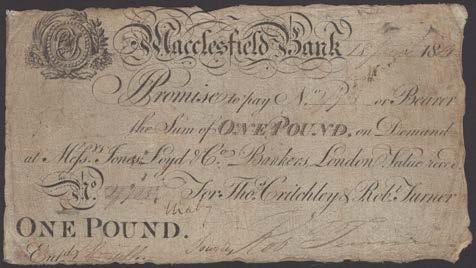 Macclesfield Bank
I Promise to pay No. or Bearer
the Sum of ONE POUND, on Demand
at Messrs. Jones, Loyd & Co. Bankers London Value recd.
No. For Thos. Critchley & Robt. Turner
ONE POUND.
Entd.